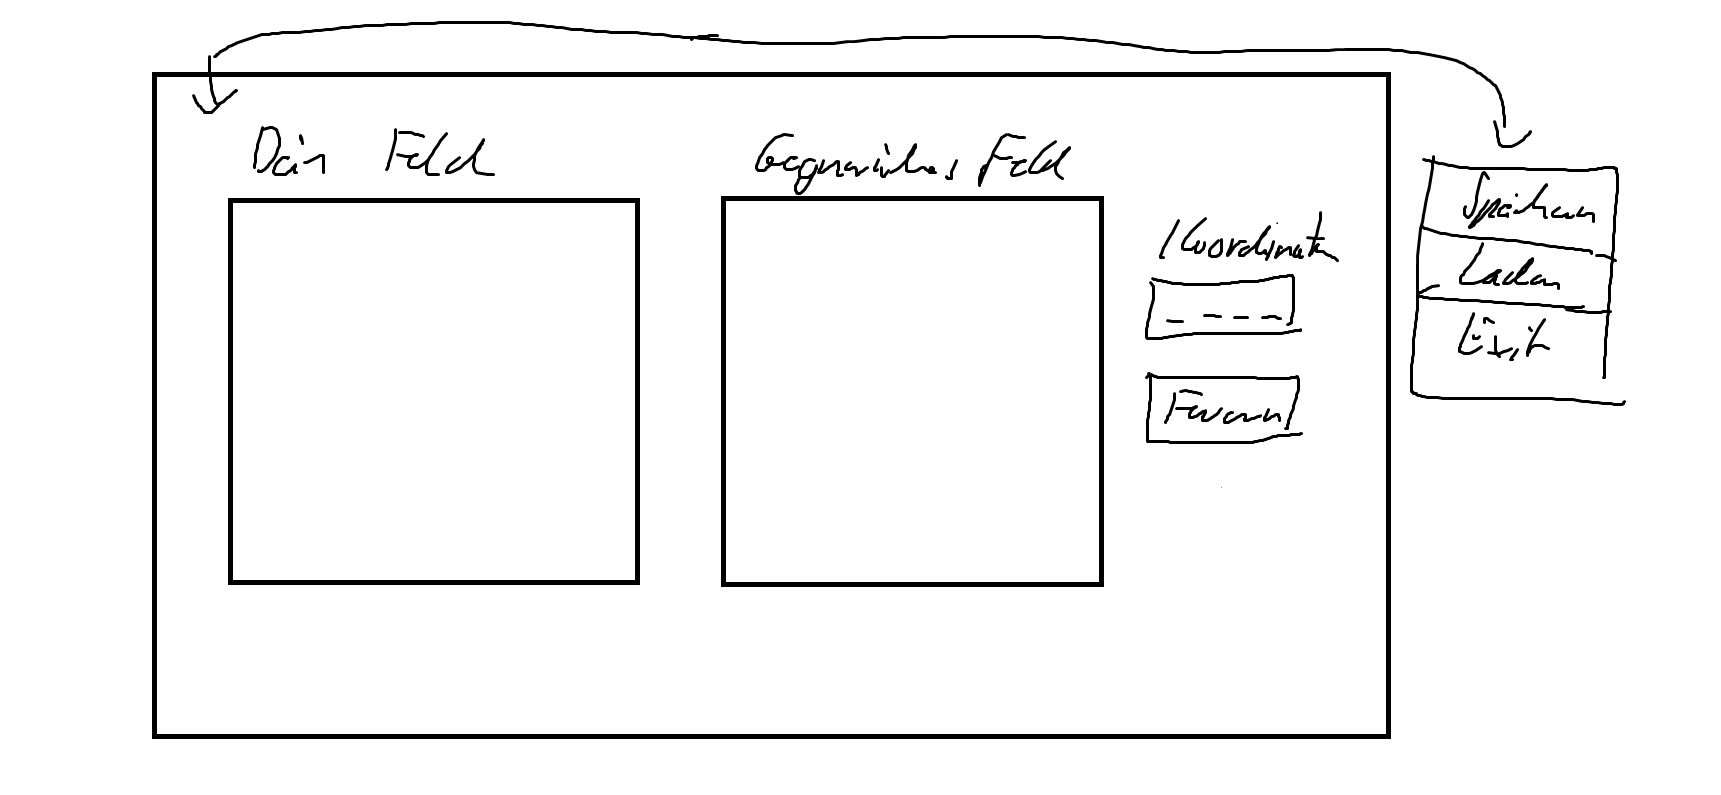 Dein Feld
Gegnerisches Feld
Koordinaten
Feuern
Speichern
Laden
Exit